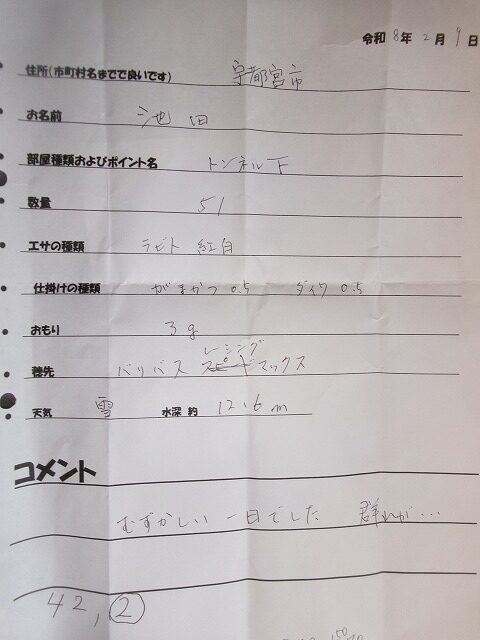 令和 8 年 2 月 9 日
住所(市町村名までで良いです) 宇都宮市
お名前 池田
部屋種類およびポイント名 トンネル下
数量 51
エサの種類 ラビト 紅白
仕掛けの種類 がまかつ 0.5 ダイワ 0.5
おもり 3g
レーシング
穂先 バリバス マックス
天気 雪 水深 約 12.6 m
コメント
むずかしい 一日でした 群れが…
42, ②